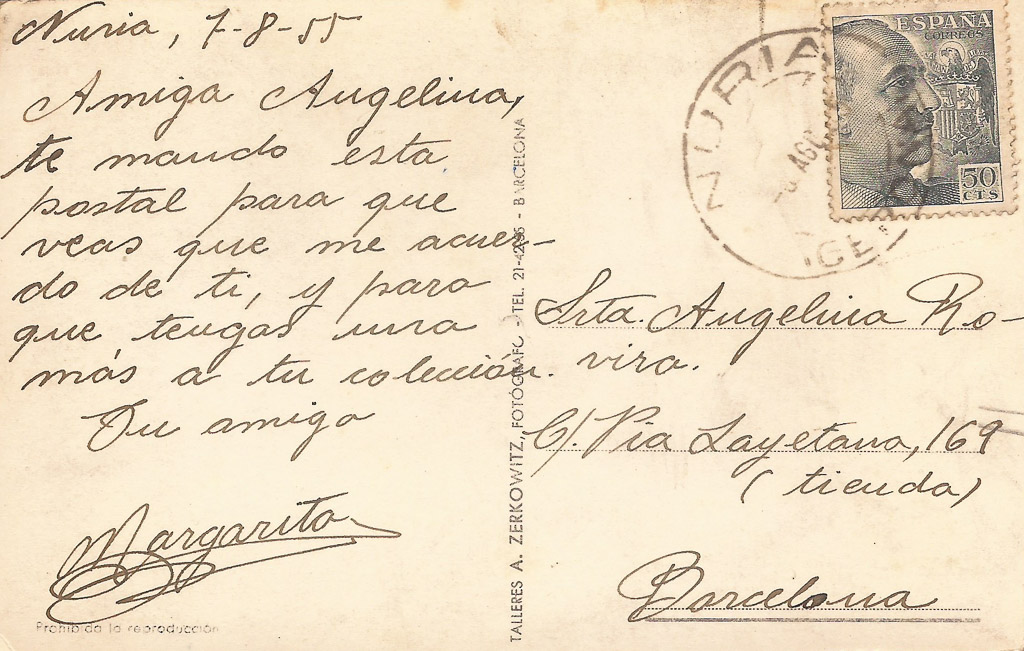 Nuria, 7-8-55
Amiga Angelina,
te mando esta
postal para que
veas que me acuer-
do de ti, y para
que tengas una
más a tu colección.
Tu amiga
Margarita
Prohibida la reproducción
TALLERES A. ZERKOWITZ, FOTÓGRAFO - TEL. 21-4295 - BARCELONA
NURIA
AGO
ESPAÑA
CORREOS
50
CTS
Srta. Angelina Ro-
vira.
C/. Via Layetana, 169
(tienda)
Barcelona